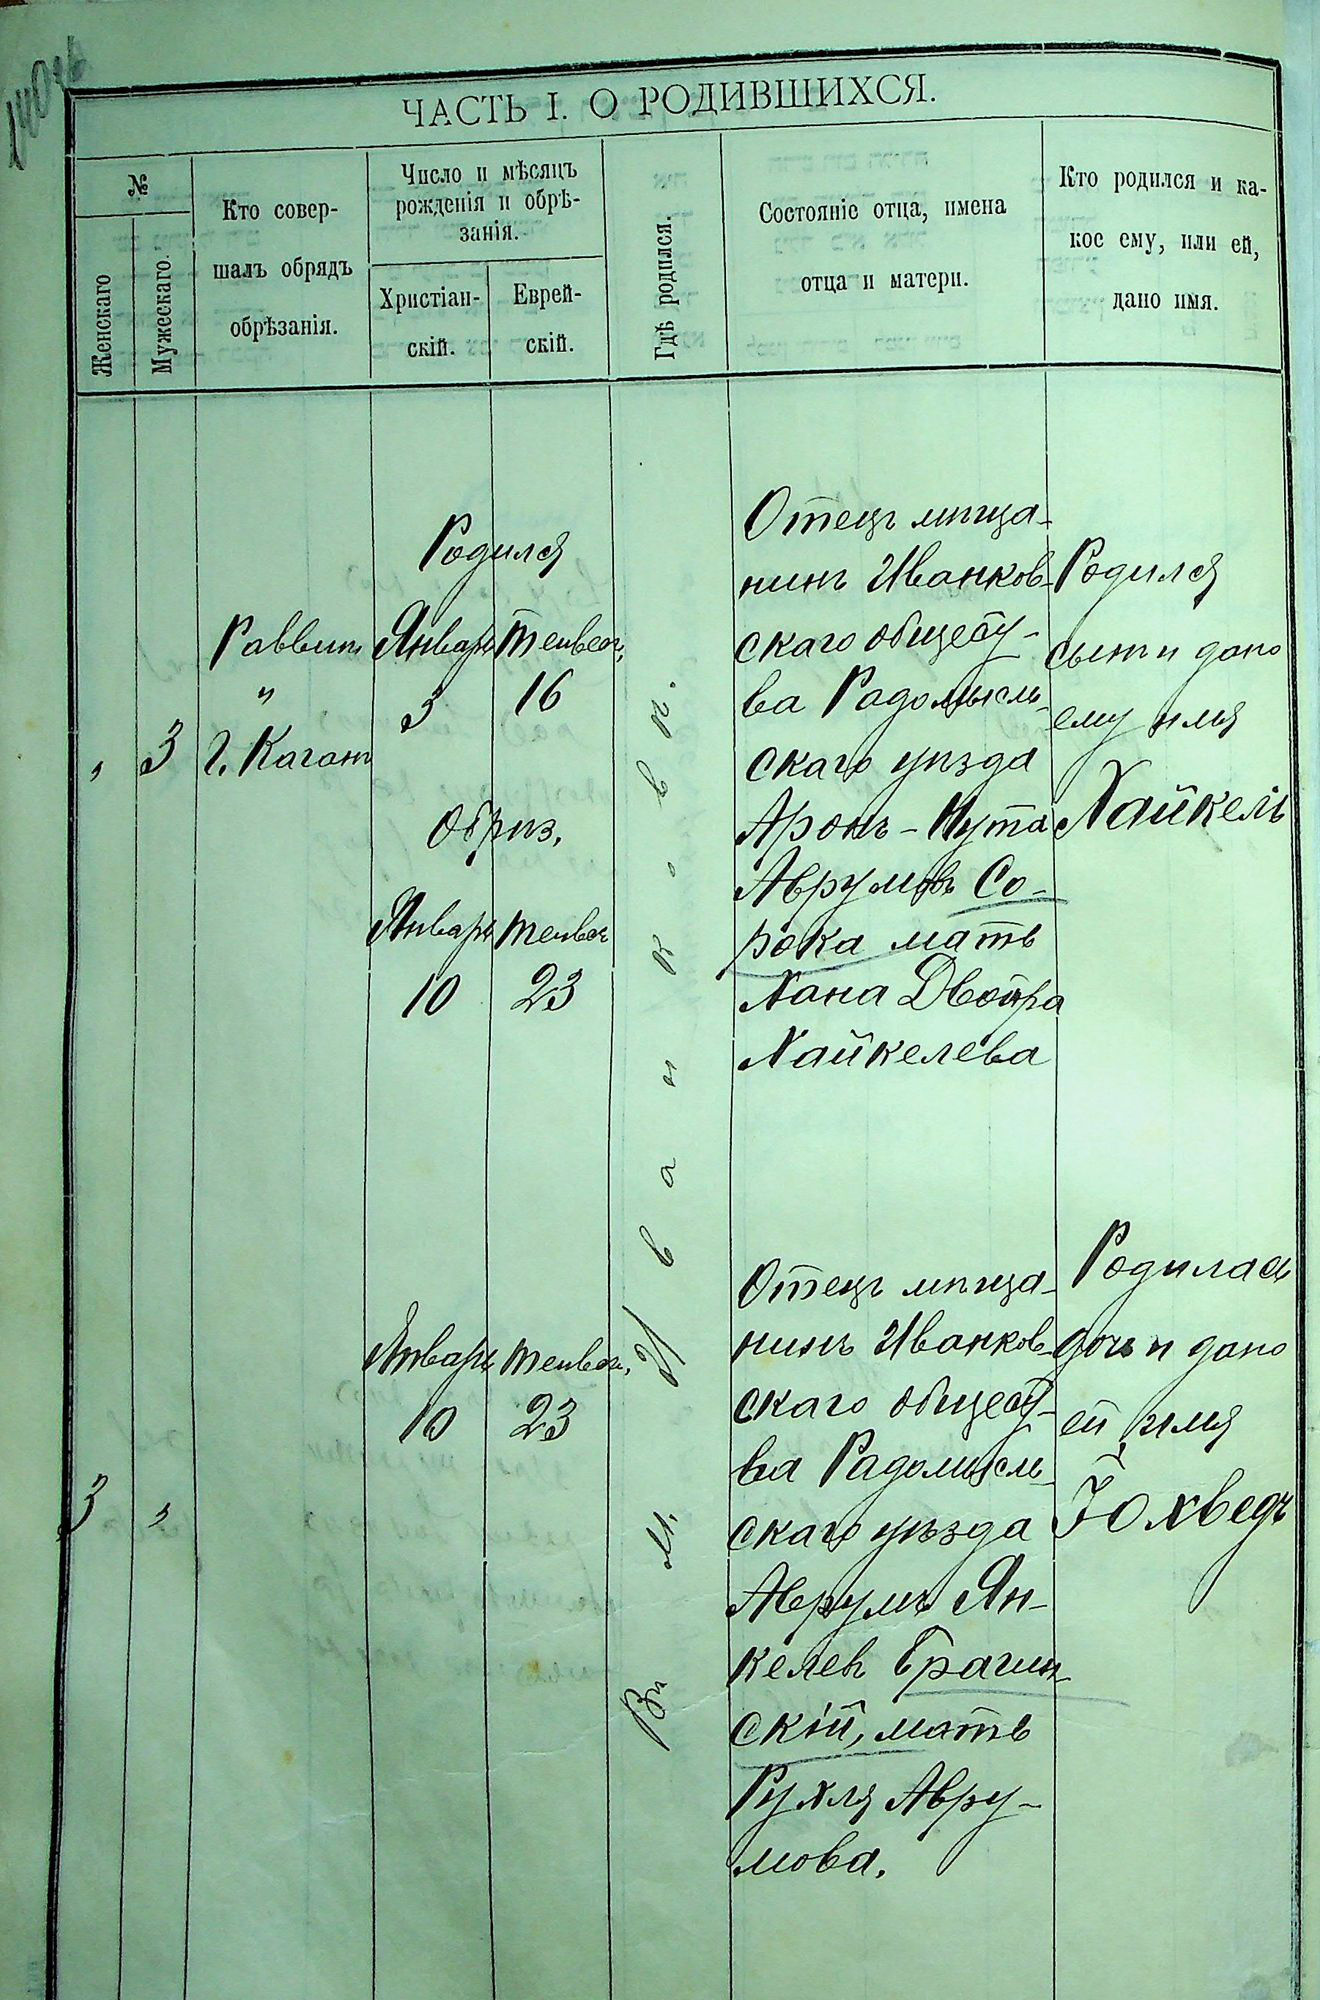 ЧАСТЬ I. О РОДИВШИХСЯ.
№
Женскаго
Мужескаго.
Кто совер-
шалъ обрядъ
обрѣзанія.
Число и мѣсяцъ
рожденія и обрѣ-
занія.
Христіан-
скій.
Еврей-
скій.
Гдѣ родился.
Состояніе отца, имена
отца и матери.
Кто родился и ка-
кое ему, или ей,
дано имя.
"
3
Раввинъ
"
Г. Каганъ
Родился
Январь
3
Тейвес,
16
Обрѣз.
Январь
10
Тейвес
23
Въ м. Иванковѣ.
Отецъ мѣща-
нинъ Иванков-
скаго общест-
ва Радомысль-
скаго уѣзда
Аронъ-Нута
Аврумовъ Со-
рока мать
Хана Двойра
Хайкелева
Родился
сынъ и дано
ему имя
Хайкель
3
"
Январь
10
Тейвес,
23
Отецъ мѣща-
нинъ Иванков-
скаго общест-
ва Радомысль-
скаго уѣзда
Аврумъ Ян-
келев Брагин-
скій, мать
Рухля Авру-
мова.
Родилась
дочь и дано
ей имя
Іохведъ